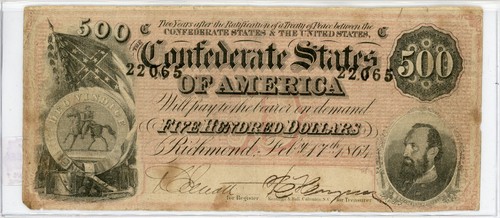 500 C Two Years after the Ratification of a Treaty of Peace between the C 500
CONFEDERATE STATES & THE UNITED STATES,
The Confederate States
22065 22065
OF AMERICA
Will pay to the bearer on demand
FIVE HUNDRED DOLLARS
Richmond, Feby. 17th 1864
for Register for Treasurer